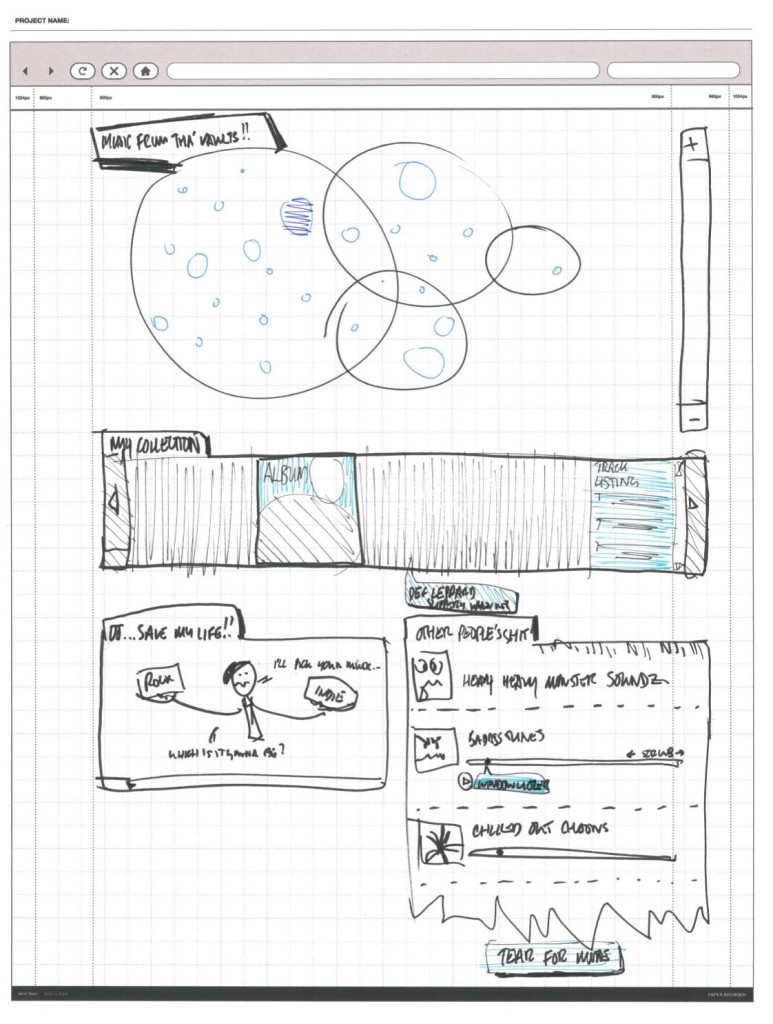 PROJECT NAME:
1024px
960px
800px
800px
960px
1024px
MUSIC FROM THA' VAULTS!!
+
-
MY COLLECTION
ALBUM
TRACK
LISTING
DEF LEPPARD
DJ...SAVE MY LIFE!!
ROCK
I'LL PICK YOUR MUSIC...
INDIE
WHICH IS IT GONNA BE?
OTHER PEOPLE'S SHIT
HEAVY HEAVY MONSTER SOUNDZ
BADASS TUNES
← SCRUB →
WINDOWLICKER
CHILLED OUT CHOONS
TEAR FOR MORE
PAPER BROWSER